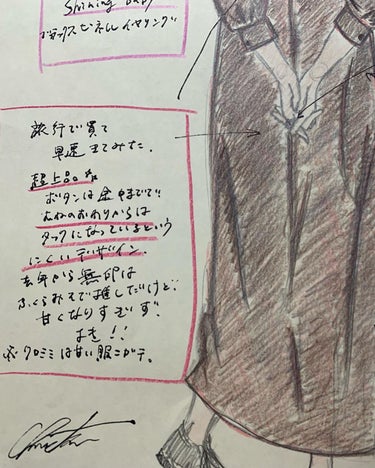 Shining
ブラックピンネル イヤリング
旅行で買て
早速 きてみた.
超上品な
ボタンは 途中までで!
むねのおわりからは
タックになっているという
にくいデザイン.
去年から 無印は
ふくらみそで推しだけど.
甘くなりすぎず.
よき!!
※クロミミは甘い服ニガテ.